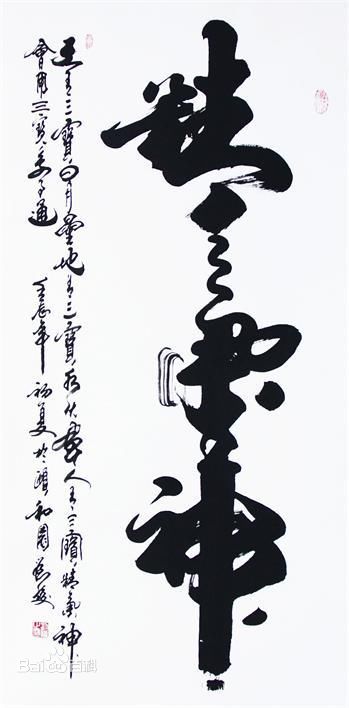 精氣神
天有三寶日月星地有三寶水火風人有三寶精氣神
會用三寶天地通 壬辰年初夏於頤和園
Bai百科